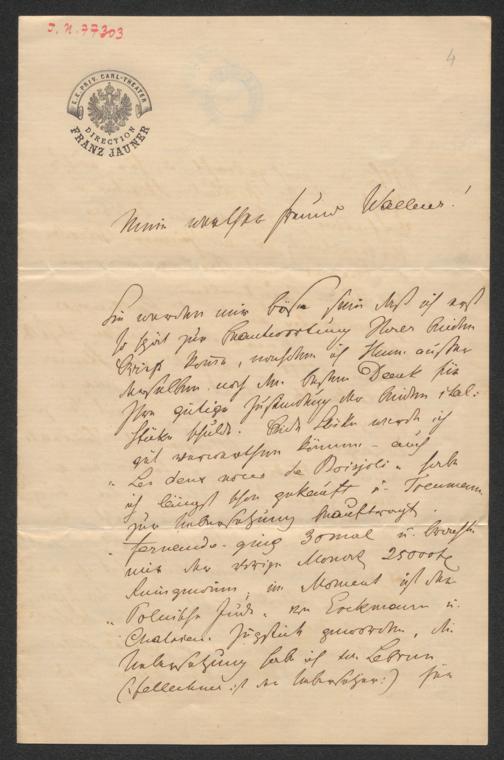 J. N. 77303
4
K. K. PRIV. CARL-THEATER
DIRECTION
FRANZ JAUNER
Mein werther Freund Wallner!
Sie werden mir böse sein daß ich erst
so spät zur Beantwortung Ihrer beiden
Briefe komme, nachdem ich Ihnen außer
derselben noch den besten Dank für
Ihre gütige Zusendung der beiden ital:
Stücke schulde. Beide Stücke werde ich
gut verwerthen können – auch
"Les deux noces de Boisjoli" habe
ich längst schon gekauft u. Treumann
zur Uebersetzung beauftragt.
"Fernande" ging 30mal u. brachte
mir den vorigen Monat 25000
Reingewinn, im Moment ist der
"Polnische Jude" von Erckmann u.
Chatrian Zugstück geworden, die
Uebersetzung hab ich von Lebrun
ist der Uebersetzer:) für